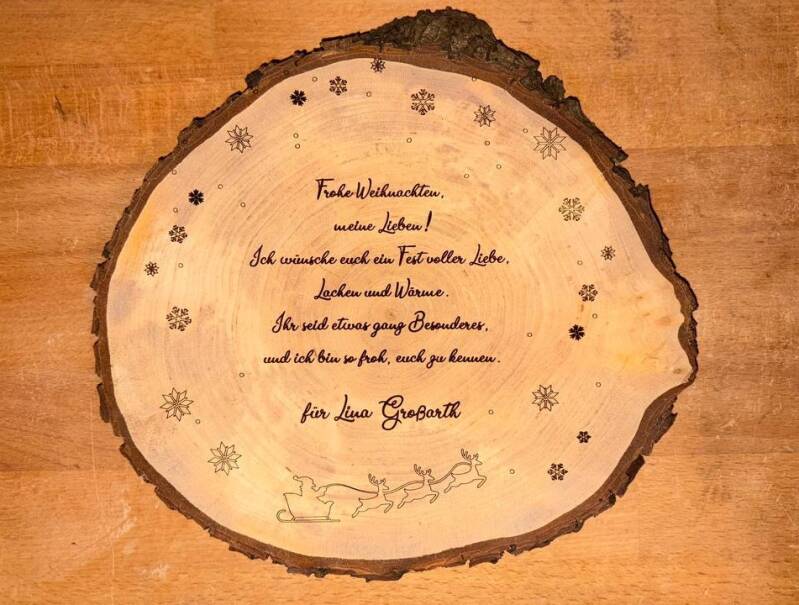 Frohe Weihnachten,
meine Lieben!
Ich wünsche euch ein Fest voller Liebe,
Lachen und Wärme.
Ihr seid etwas ganz Besonderes,
und ich bin so froh, euch zu kennen.
für Lina Großarth